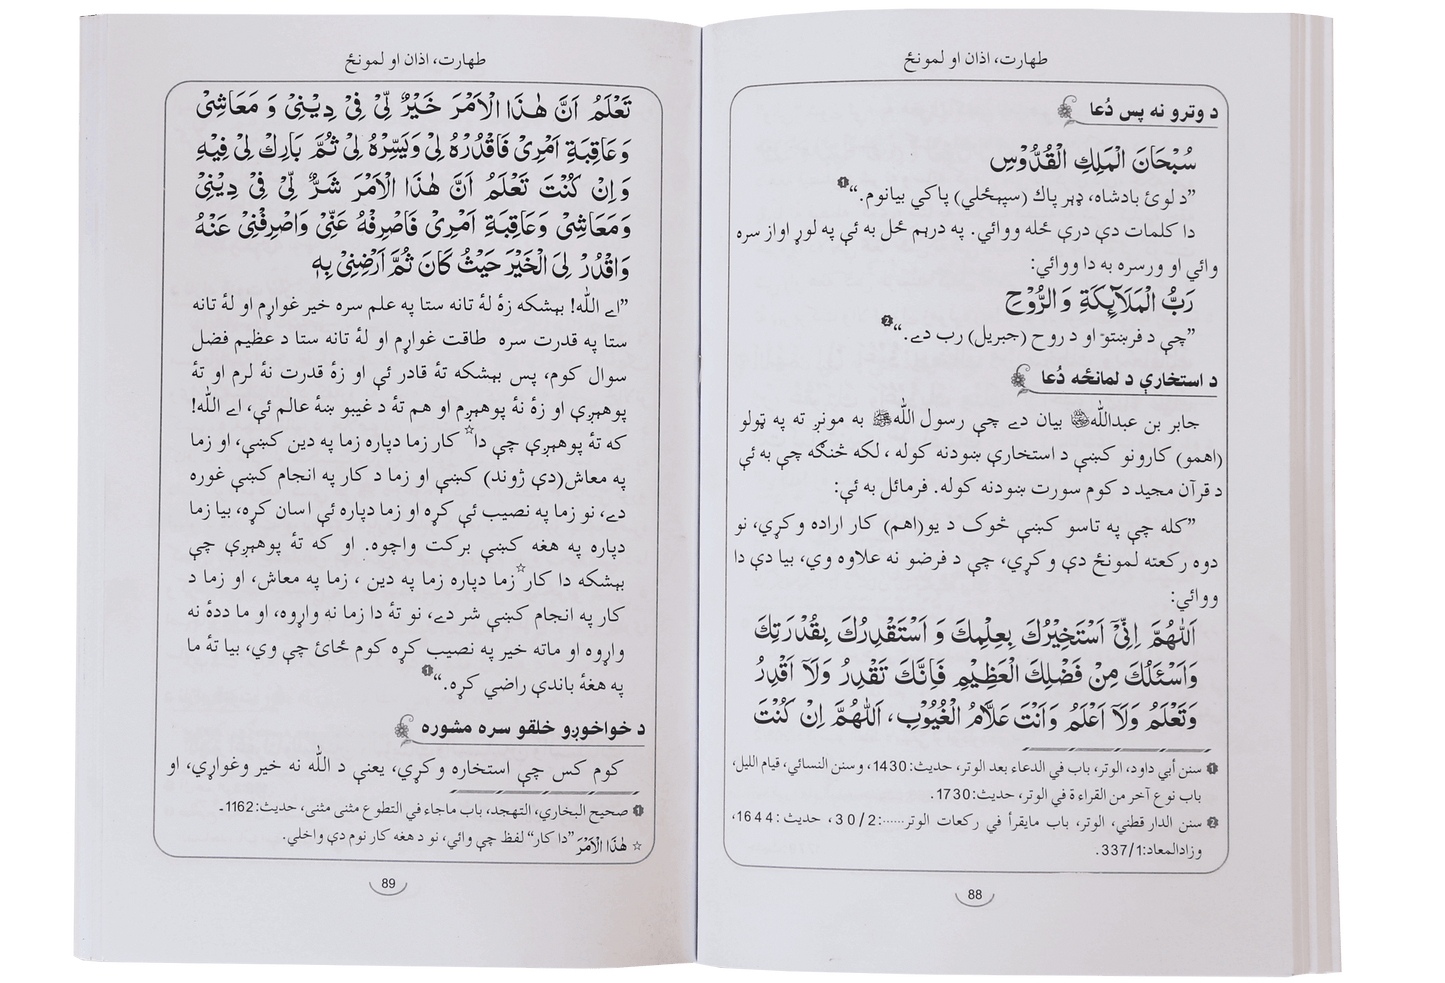 طهارت، اذان او لمونځ
د وترو نه پس دُعا
سُبْحَانَ الْمَلِكِ الْقُدُّوْسِ
”د لوئ بادشاه، ډېر پاك (سپېڅلي) پاكي بيانوم.“❶
دا كلمات دې درې ځله ووائي. په درېم ځل به ئې په لوړ اواز سره
وائي او ورسره به دا ووائي:
رَبُّ الْمَلَآئِكَةِ وَ الرُّوْحِ
”چې د فرښتو او د روح (جبريل) رب دے.“❷
د استخارې د لمانځه دُعا
جابر بن عبداللهؓ بيان دے چې رسول اللهﷺ به مونږ ته په ټولو
(اهمو) كارونو كښې د استخارې ښودنه كوله ، لكه څنګه چې به ئې
د قرآن مجيد د كوم سورت ښودنه كوله. فرمائل به ئې:
”كله چې په تاسو كښې څوک د يو(اهم) كار اراده وكړي، نو
دوه ركعته لمونځ دې وكړي، چې د فرضو نه علاوه وي، بيا دې دا
ووائي:
اَللّٰهُمَّ اِنِّيْٓ اَسْتَخِيْرُكَ بِعِلْمِكَ وَ اَسْتَقْدِرُكَ بِقُدْرَتِكَ
وَاَسْئَلُكَ مِنْ فَضْلِكَ الْعَظِيْمِ فَاِنَّكَ تَقْدِرُ وَلَآ اَقْدِرُ
وَتَعْلَمُ وَلَآ اَعْلَمُ وَاَنْتَ عَلَّامُ الْغُيُوْبِ، اَللّٰهُمَّ اِنْ كُنْتَ
❶ سنن أبي داود، الوتر، باب في الدعاء بعد الوتر، حديث:1430، و سنن النسائي، قيام الليل،
باب نوع آخر من القراءة في الوتر، حديث:1730.
❷ سنن الدار قطني، الوتر، باب مايقرأ في ركعات الوتر......:30/2، حديث :1644،
وزادالمعاد:337/1.
88
طهارت، اذان او لمونځ
تَعْلَمُ اَنَّ هٰذَا الْاَمْرَ خَيْرٌ لِّيْ فِيْ دِيْنِيْ وَ مَعَاشِيْ
وَعَاقِبَةِ اَمْرِيْ فَاقْدُرْهُ لِيْ وَيَسِّرْهُ لِيْ ثُمَّ بَارِكْ لِيْ فِيْهِ
وَاِنْ كُنْتَ تَعْلَمُ اَنَّ هٰذَا الْاَمْرَ شَرٌّ لِّيْ فِيْ دِيْنِيْ
وَمَعَاشِيْ وَعَاقِبَةِ اَمْرِيْ فَاصْرِفْهُ عَنِّيْ وَاصْرِفْنِيْ عَنْهُ
وَاقْدُرْ لِيَ الْخَيْرَ حَيْثُ كَانَ ثُمَّ اَرْضِنِيْ بِهٖ
”اے الله! بېشكه زهٔ لهٔ تانه ستا په علم سره خير غواړم او لهٔ تانه
ستا په قدرت سره طاقت غواړم او لهٔ تانه ستا د عظيم فضل
سوال كوم، پس بېشكه تهٔ قادر ئې او زهٔ قدرت نهٔ لرم او تهٔ
پوهېږې او زهٔ نهٔ پوهېږم او هم تهٔ د غيبو ښهٔ عالم ئې، اے الله!
كه تهٔ پوهېږې چې دا☆ كار زما دپاره زما په دين كښې، او زما
په معاش(دې ژوند) كښې او زما د كار په انجام كښې غوره
دے، نو زما په نصيب ئې كړه او زما دپاره ئې اسان كړه، بيا زما
دپاره په هغه كښې بركت واچوه. او كه تهٔ پوهېږې چې
بېشكه دا كار☆زما دپاره زما په دين ، زما په معاش، او زما د
كار په انجام كښې شر دے، نو تهٔ دا زما نه واړوه، او ما ددهٔ نه
واړوه او ماته خير په نصيب كړه كوم ځائ چې وي، بيا تهٔ ما
په هغهٔ باندې راضي كړه.“❶
د خواخوږو خلقو سره مشوره
كوم كس چې استخاره وكړي، يعنې د الله نه خير وغواړي، او
❶ صحيح البخاري، التهجد، باب ماجاء في التطوع مثنى مثنى، حديث:1162۔
☆ هٰذَا الْاَمْرَ ”دا كار“ لفظ چې وائي، نو د هغه كار نوم دې واخلي.
89